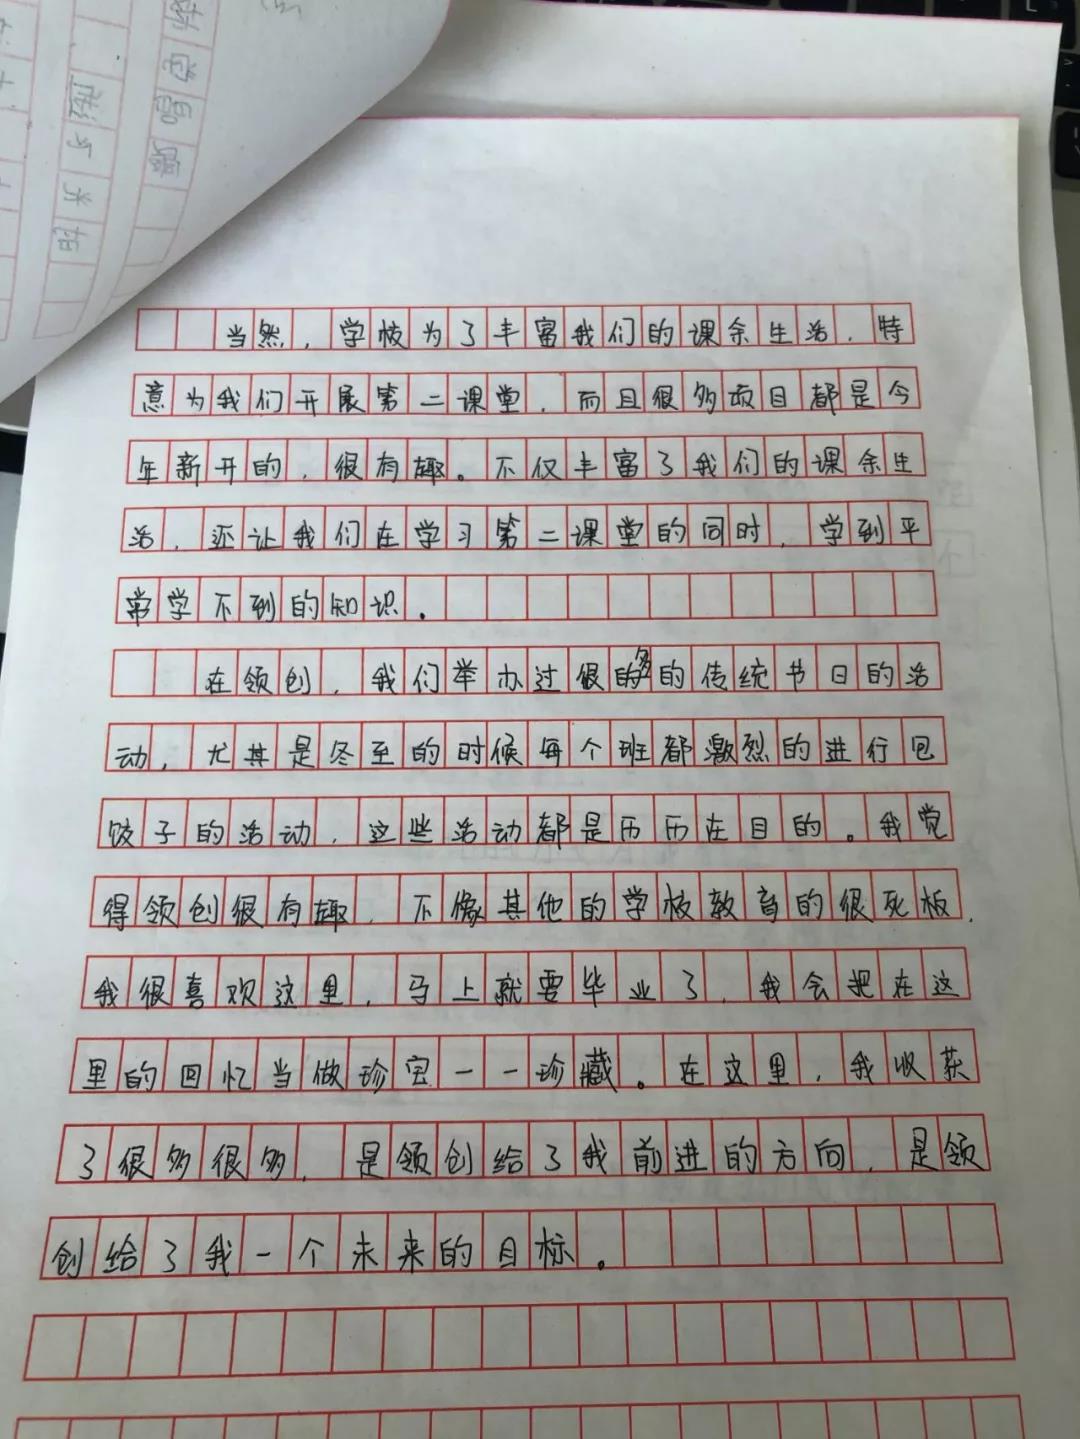 当然，学校为了丰富我们的课余生活，特
意为我们开展第二课堂，而且很多项目都是今
年新开的，很有趣。不仅丰富了我们的课余生
活，还让我们在学习第二课堂的同时，学到平
常学不到的知识。
在领创，我们举办过很多的传统节日的活
动，尤其是冬至的时候每个班都激烈的进行包
饺子的活动，这些活动都是历历在目的。我觉
得领创很有趣，不像其他的学校教育的很死板，
我很喜欢这里，马上就要毕业了，我会把在这
里的回忆当做珍宝一一珍藏。在这里，我收获
了很多很多，是领创给了我前进的方向，是领
创给了我一个未来的目标。